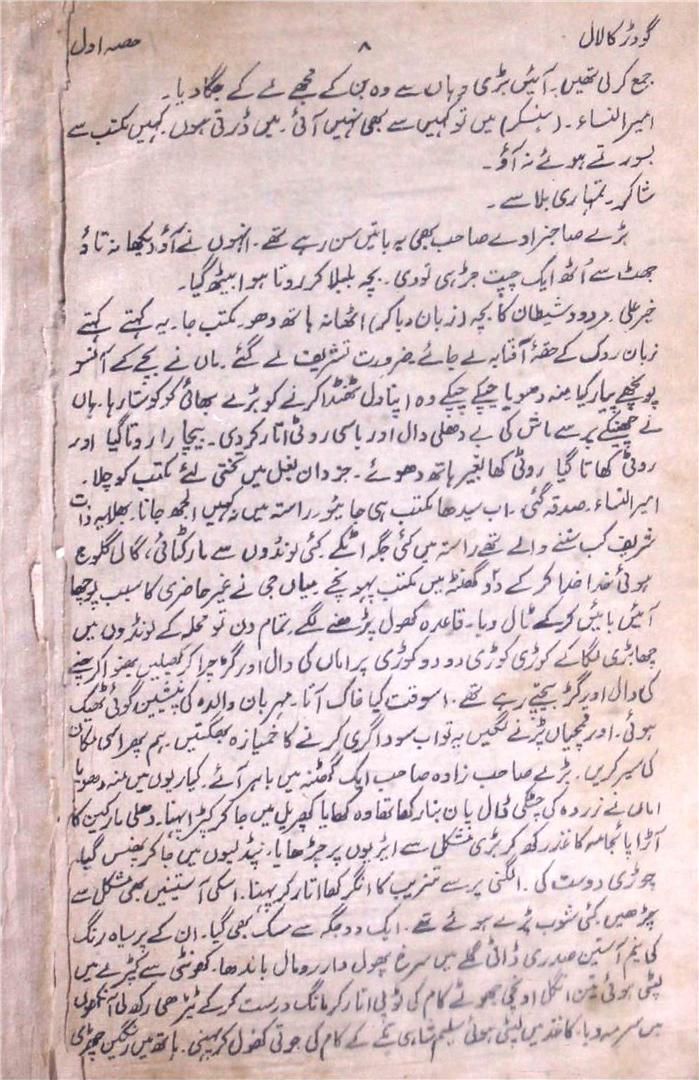 گودڑ کا لال ۸ حصہ اول
جمع کر لی تھیں۔ آئیں بڑی وہاں سے وہ بن کے مجھے لے کے جگا دیا۔
امیر النساء۔ (ہنسکر) میں تو کہیں سے بھی نہیں آئی۔ میں ڈرتی ہوں۔ کہیں مکتب سے
بسورتے ہوئے نہ آؤ۔
شاکر۔ تمہاری بلا سے۔
بڑے صاحبزادے صاحب بھی یہ باتیں سن رہے تھے۔ انہوں نے آؤ دیکھا نہ تاؤ
جھٹ سے اُٹھ ایک چپت جڑ ہی تو دی۔ بچہ بلبلا کر روتا ہوا بیٹھ گیا۔
خیر علی۔ مردود شیطان کا بچہ (زبان دبا کر) اٹھا نہ ہاتھ دھو۔ مکتب جا۔ یہ کہتے کہتے
زبان روک کے حقہ آفتابہ لے جائے ضرورت تشریف لے گئے۔ ماں نے بچے کے آنسو
پونچھے پیار کیا منہ دھویا چپکے چپکے وہ اپنا دل ٹھنڈا کرنے کو بڑے بھائی کو کوستا رہا۔ ماں
نے چھینکے پر سے ماش کی بے دھلی دال اور باسی روٹی اتار کر دی۔ بیچارا روتا گیا اور
روٹی کھاتا گیا روٹی کھا بغیر ہاتھ دھوئے۔ جزدان بغل میں تختی لئے مکتب کو چلا۔
امیر النساء۔ صدقہ گئی۔ اب سیدھا مکتب ہی جائیو۔ راستہ میں نہ کہیں الجھ جانا۔ بھلا یہ ذات
شریف کب سننے والے تھے راستہ میں کئی جگہ اٹکے۔ کئی لونڈوں سے مار کٹائی، گالی گلوچ
ہوئی خدا خدا کر کے گھنٹہ میں مکتب پہونچے میاں جی نے غیر حاضری کا سبب پوچھا
آئیں بائیں کر کے ٹال دیا۔ قاعدہ کھول پڑھنے لگے۔ تمام دن تو محلہ کے لونڈوں میں
چھابڑی لگا کے کوڑی کوڑی دو دو کوڑی پر اماں کی دال اور گڑ چرا کر کھیلیں بھنوا کر چنے
کی دال اور گڑ بیچتے رہے تھے۔ اسوقت کیا خاک آتا۔ مہربان والدہ کی پیشین گوئی ٹھیک
ہوئی۔ اور قمچیاں پڑنے لگیں یہ تو اب سوداگری کرنے کا خمیازہ بھگتیں۔ ہم پھر اسی مکان
کی سیر کریں۔ بڑے صاحب زادہ صاحب ایک گھنٹہ میں باہر آئے۔ کیاریوں میں منہ دھویا
اماں نے زردہ کی چٹکی ڈال پان بنا رکھا تھا وہ کھایا کھپریل میں جا کر کپڑا پہنا۔ دھلی مارکین کا
آڑا پائجامہ کاغذ رکھ کر بڑی مشکل سے ایڑیوں پر چڑھایا۔ پنڈلیوں میں جا کر پھنس گیا۔
چوڑی درست کی۔ الگنی پر سے تنزیب کا انگرکھا اتار کر پہنا۔ اسکی آستینیں بھی مشکل سے
چڑھیں کئی شوب پڑے ہوئے تھے۔ ایک دو جگہ سے مسک بھی گیا۔ ان کے پر سیاہ رنگ
کی نیم آستین صدری ڈانٹی گلے میں سرخ پھول دار رومال باندھا۔ کھونٹی سے کپڑے میں
لپٹی ہوئی تین انگل اونچی جھوٹے کام کی ٹوپی اتار کر مانگ درست کر کے ٹیڑھی رکھ لی آنکھوں
میں سرمہ دیا۔ کاغذ میں لپٹی ہوئی سلیم شاہی کے کام کی جوتی کھول کر پہنی۔ ہاتھ میں رنگین چھڑی